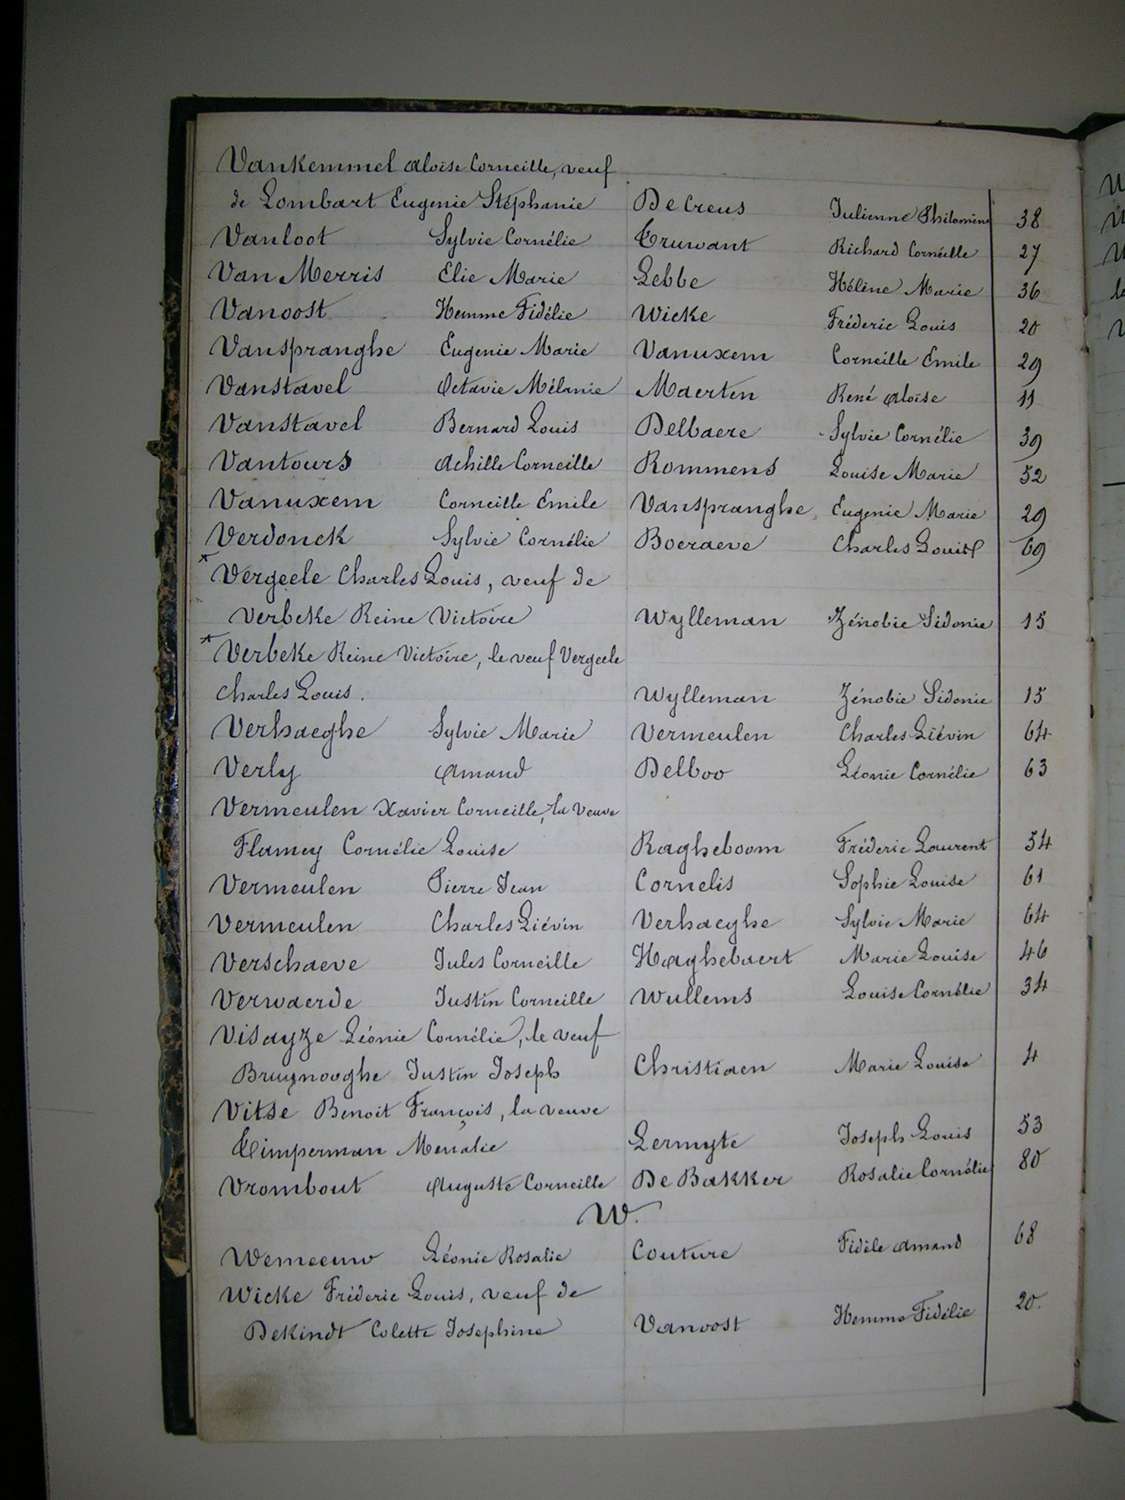 Vankemmel Aloïse Corneille, veuf
de Lombart Eugenie Stéphanie Decreus Julienne Philomène 38
Vanloot Sylvie Cornélie Cruwant Richard Corneille 27
Van Merris Elie Marie Lebbe Hélène Marie 36
Vanoost Hemme Fidélie Wicke Fréderic Louis 20
Vanspranghe Eugenie Marie Vanuxem Corneille Emile 29
Vanstavel Octavie Mélanie Maerten René Aloïse 11
Vanstavel Bernard Louis Delbaere Sylvie Cornélie 39
Vantours Achille Corneille Rommens Louise Marie 52
Vanuxem Corneille Emile Vanspranghe Eugenie Marie 29
Verdonck Sylvie Cornélie Boeraeve Charles Louis 69
* Vergeele Charles Louis, veuf de
Verbeke Reine Victoire Wylleman Zénobie Sidonie 15
* Verbeke Reine Victoire, le veuf Vergeele
Charles Louis. Wylleman Zénobie Sidonie 15
Verhaeghe Sylvie Marie Vermeulen Charles Liévin 64
Verly Amand Delboo Léonie Cornélie 63
Vermeulen Xavier Corneille, la veuve
Flamey Cornélie Louise Ragheboom Fréderic Laurent 54
Vermeulen Pierre Jean Cornelis Sophie Louise 61
Vermeulen Charles Liévin Verhaeghe Sylvie Marie 64
Verschaeve Jules Corneille Haghebaert Marie Louise 46
Verwaerde Justin Corneille Wullems Louise Cornélie 34
Visayze Léonie Cornélie, le veuf
Bruynooghe Justin Joseph Christiaen Marie Louise 4
Vitse Benoit François, la veuve
Timperman Menalie Lermyte Joseph Louis 53
Vrombout Auguste Corneille De Bakker Rosalie Cornélie 80
W.
Wemeeuw Léonie Rosalie Couture Fidèle Amand 68
Wicke Fréderic Louis, veuf de
Dekindt Colette Josephine Vanoost Hemme Fidélie 20.